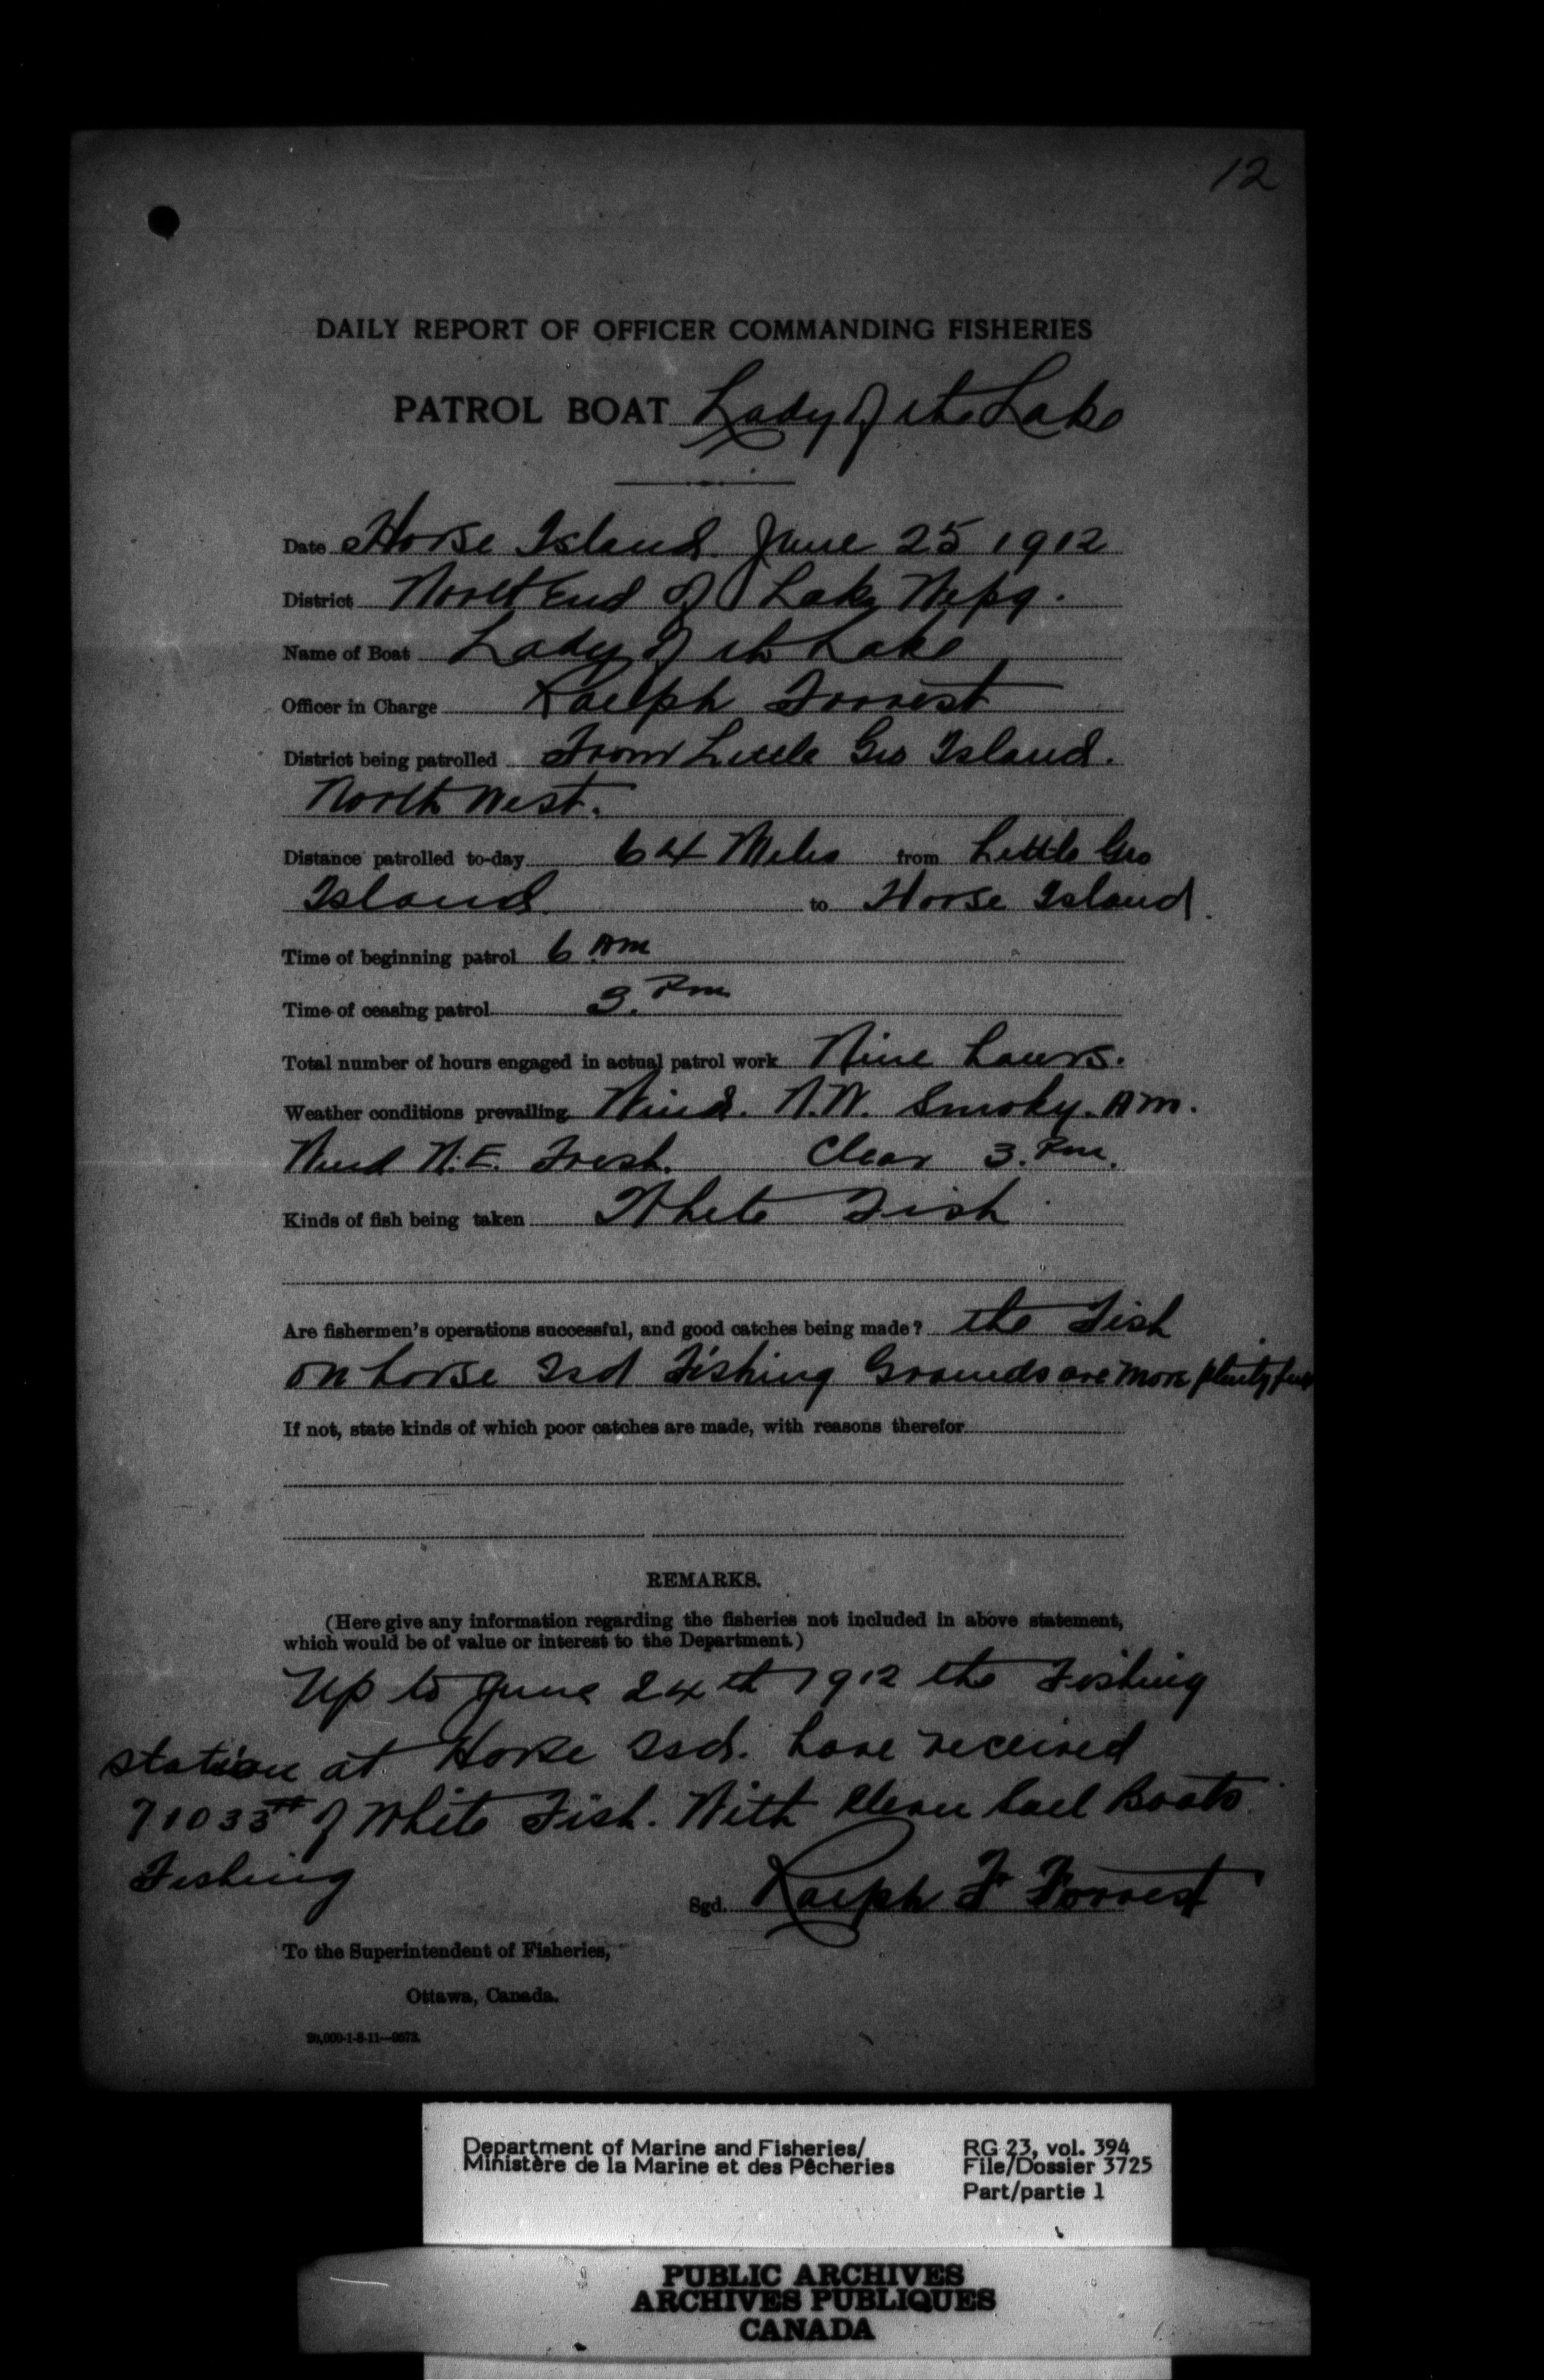 12
DAILY REPORT OF OFFICER COMMANDING FISHERIES
PATROL BOAT Lady of the Lake
Date Horse Island. June 25 1912
District North End of Lake Wpg.
Name of Boat Lady of the Lake
Officer in Charge Ralph Forrest
District being patrolled From Little Geo Island.
North West.
Distance patrolled to-day 64 Miles from Little Geo
Island. to Horse Island.
Time of beginning patrol 6 AM
Time of ceasing patrol 3. Pm
Total number of hours engaged in actual patrol work Nine hours.
Weather conditions prevailing Wind. N.W. Smoky. Am.
Wind N.E. Fresh. Clear 3. Pm.
Kinds of fish being taken White Fish
Are fishermen's operations successful, and good catches being made? the Fish
on horse Isd Fishing Grounds are more plentyfull
If not, state kinds of which poor catches are made, with reasons therefor
REMARKS.
(Here give any information regarding the fisheries not included in above statement,
which would be of value or interest to the Department.)
Up to June 24th 1912 the Fishing
station at Horse Isd. have received
71033# of White Fish. With Eleven Sail Boats
Fishing
Sgd. Ralph F Forrest
To the Superintendent of Fisheries,
Ottawa, Canada.
Department of Marine and Fisheries/ RG 23, vol. 394
Ministère de la Marine et des Pêcheries File/Dossier 3725
Part/partie 1
PUBLIC ARCHIVES
ARCHIVES PUBLIQUES
CANADA